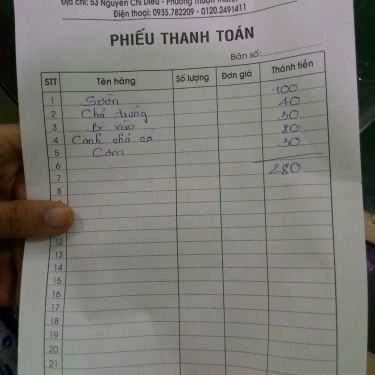 Địa chỉ: 53 Nguyễn Chí Diểu - Phường Thuận Thành
Điện thoại: 0935.782209 - 0120.2491411
PHIẾU THANH TOÁN
Bàn số:
STT Tên hàng Số lượng Đơn giá Thành tiền
1 Sườn 100
2 Chả trứng 40
3 30
4 Canh chả cá 80
5 Cơm 30
6
7 280
8
12
13
14
15
16
17
18
19
20
21